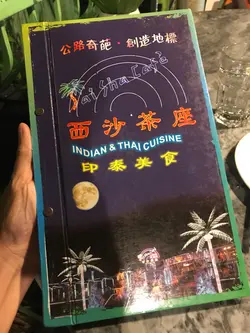 公路奇葩·創造地標
Sai Sha Café
西沙茶座
INDIAN & THAI CUISINE
印泰美食